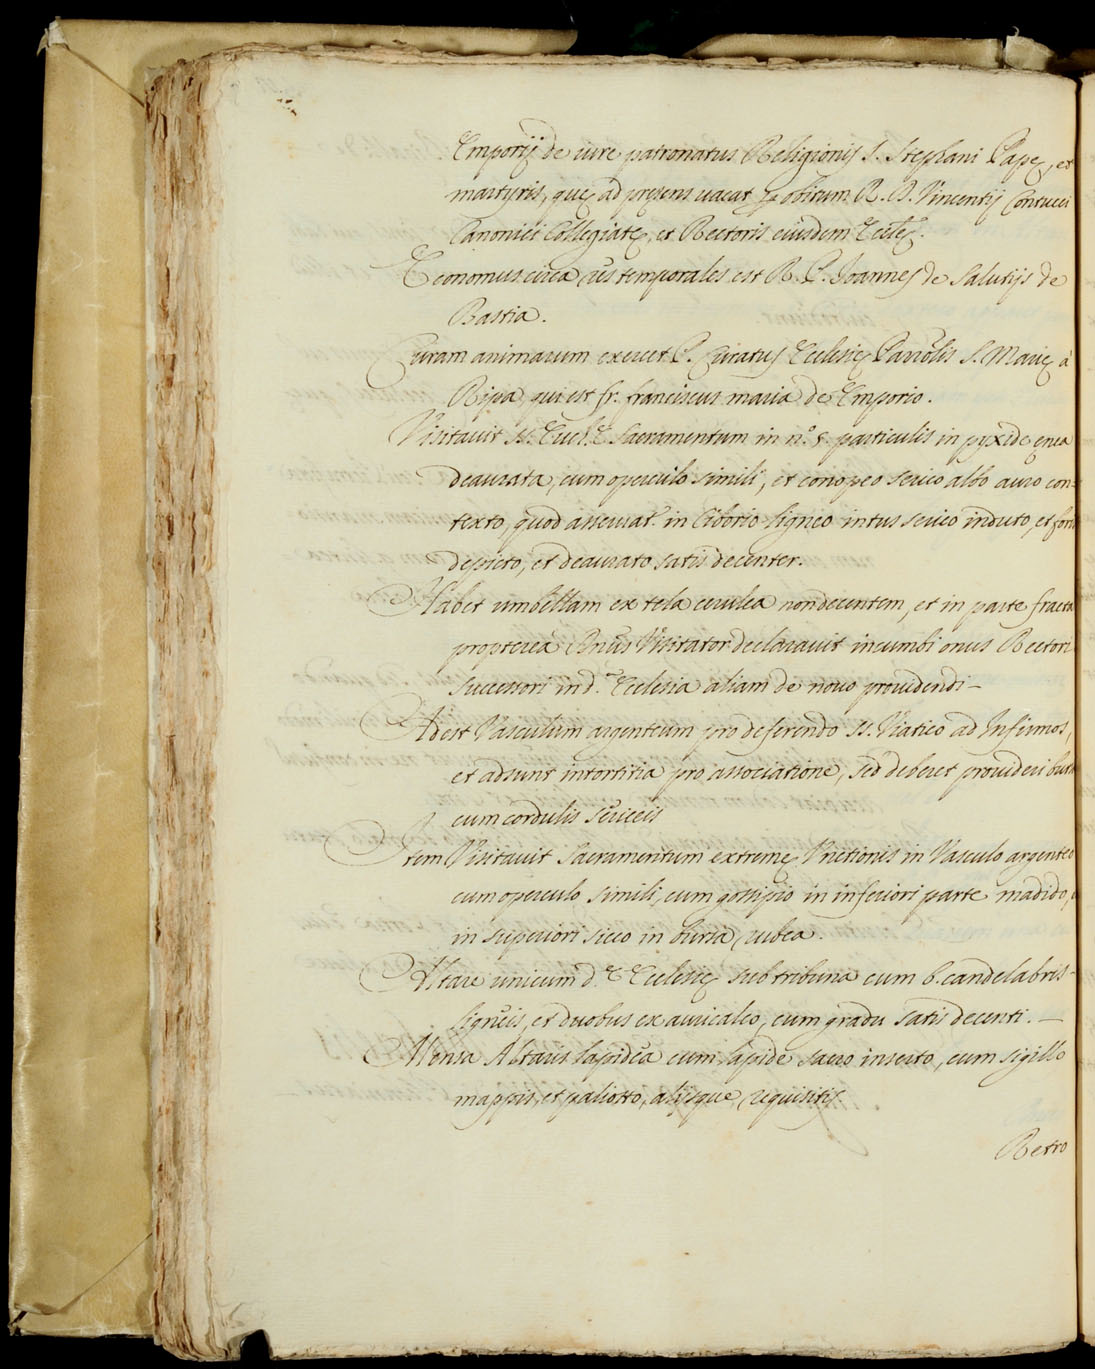 Emporij de iure patronatus Religionis S. Stephani Papę, et
martyris, quę ad presens uacat per obitum R. D. Vincentij Contucci
Canonici Collegiatę, et Rectoris eiusdem Eccle.ę
Economus circa res temporales est R. P. Joannes de Salutijs de
Bastia.
Curam animarum exercet P. Curatus Ecclesię Parrõlis S. Marię à
Ripa, qui est fr. franciscus maria de Emporio.
Visitauit SS. Euch.ę Sacramentum in n.º 5. particulis in pyxide ęnea
deaurata, cum operculo simili, et conopeo serico albo auro con=
texto, quod asseruat.r in Ciborio ligneo intus serico induto, et foris
depicto, et deaurato satis decenter.
Habet umbellam ex tela cerulea non decentem, et in parte fracta
propterea Dnus Visitator declarauit incumbi onus Rectori
successori in d.ª Ecclesia aliam de nouo prouidendi –
Adest Vasculum argenteum pro deferendo SS. Viatico ad Infirmos,
et adsunt intortitia pro associatione, sed deberet prouideri bursa
cum cordulis sericeis
Item Visitauit Sacramentum extremę Vnctionis in Vasculo argenteo
cum operculo simili, cum gossipio in inferiori parte madido,
in superiori sicco in bursa rubea.
Altare unicum d.ę Ecclesię sub tribuna cum 6. candelabris –
ligneis, et duobus ex auricalco, cum gradu satis decenti. –
Mensa Altaris lapidea cum lapide sacro inserto, cum sigillo
mappis, et paliotto, alijsque requisitis.
Retro